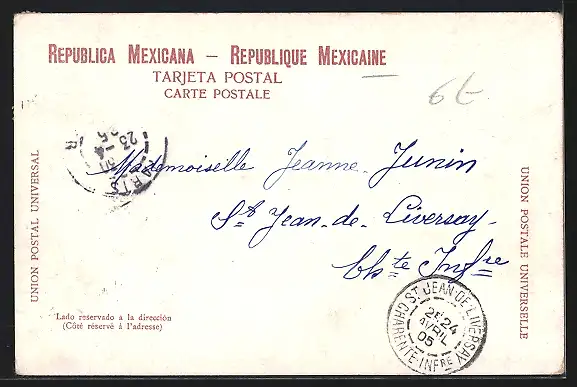 REPUBLICA MEXICANA – REPUBLIQUE MEXICAINE
TARJETA POSTAL
CARTE POSTALE
6t
PARIS
Mademoiselle Jeanne Junin
St Jean-de-Liversay-
Chte Infre
UNION POSTAL UNIVERSAL
UNION POSTALE UNIVERSELLE
Lado reservado a la dirección
(Côté réservé à l'adresse)
ST JEAN-DE-LIVERSAY
2E 24
AVRIL
05
CHARENTE-INFRE